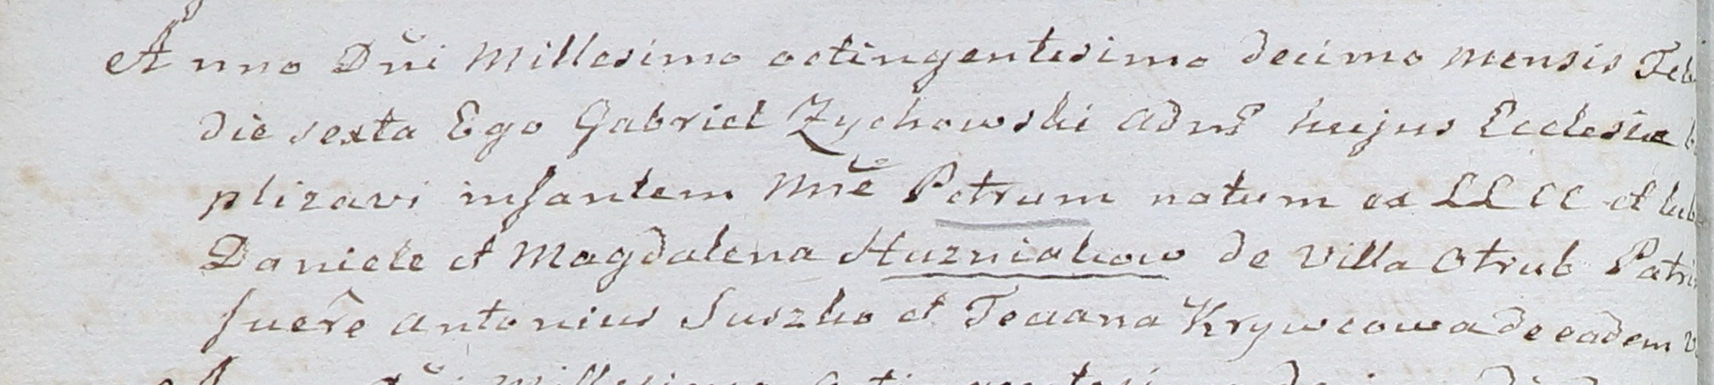 Anno Dñi Millesimo octingentesimo decimo mensis Feb
die sexta Ego Gabriel Zychowski Admr̃ hujus Ecclesiæ
ptizavi infantem Nnĕ Petrum natum ex LLCC et
Daniele et Magdalena Huzniakow de Villa Otrub Patri
fuere Antonius Suszko et Teciana Krywcowa de eadem
Dñi Millesimo